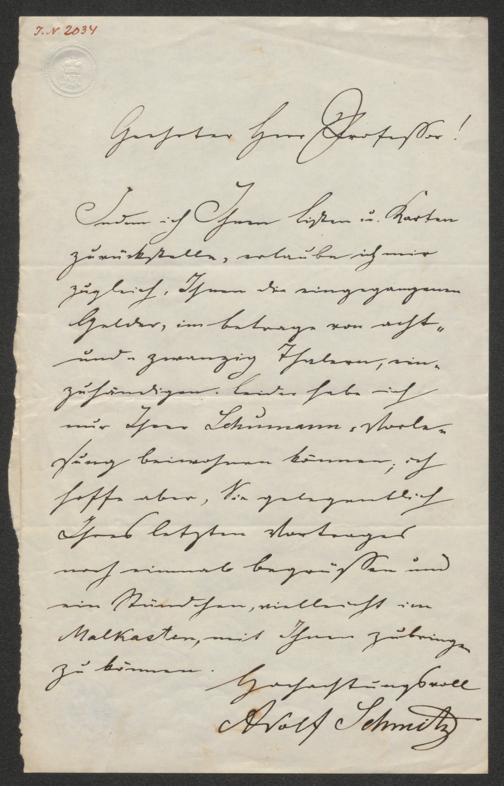 J.N 2034
Geehrter Herr Professor!
Indem ich Ihnen Listen u. Karten
zurückstelle, erlaube ich mir
zugleich, Ihnen die eingegangenen
Gelder, im betrage von acht-
und-zwanzig Thalern, ein-
zuhändigen. Leider habe ich
nur Ihrer Schumann-Vorle-
sung beiwohnen können; ich
hoffe aber, Sie gelegentlich
Ihres letzten Vortrages
noch einmal begrüssen und
ein Stündchen, vielleicht im
Malkasten, mit Ihnen zubringen
zu können.
Hochachtungsvoll
Adolf Schmitz